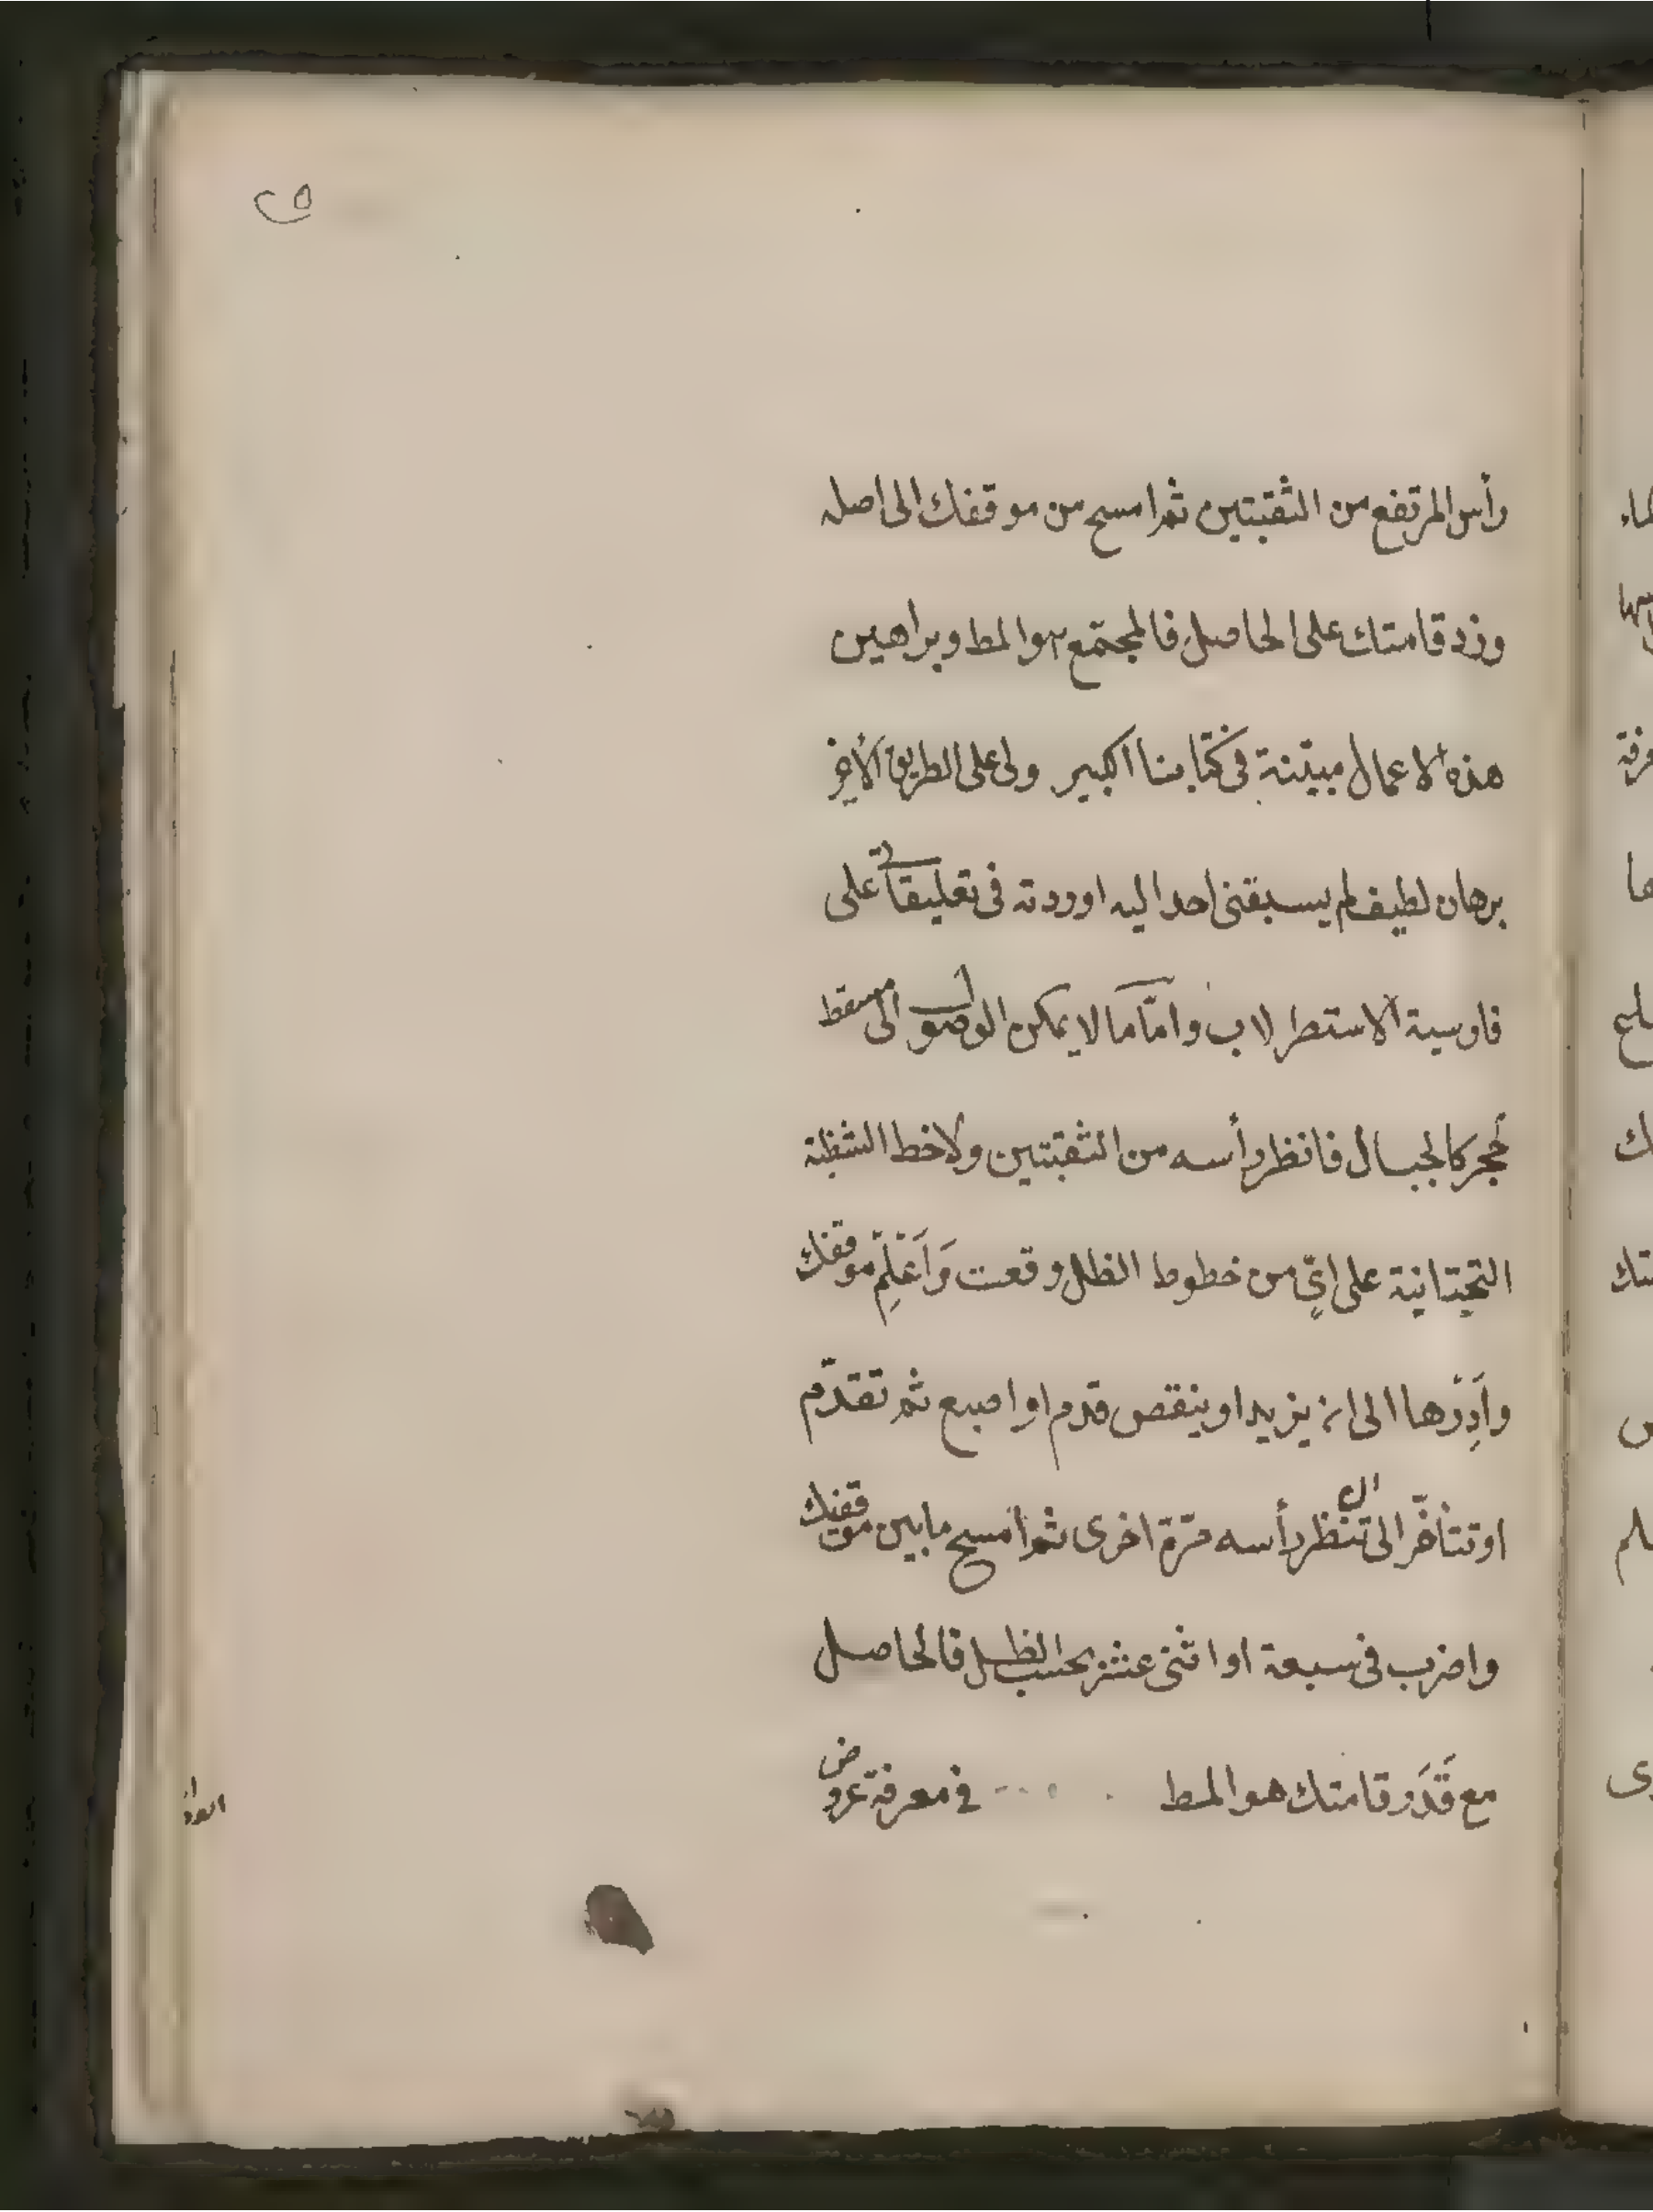 ٢٥
رأس المرتفع من الثقبتين ثم امسح من موقفك الى اصله
وزد قامتك على الحاصل فالمجتمع هو المط وبراهين
هذه الاعمال مبيّنة فى كتابنا الكبير ولى على الطريق الأخير
برهان لطيف لم يسبقنى احد اليه اوردته فى تعليقاتى على
فارسية الاستطرلاب وامّا ما لا يمكن الوصول الى مسقط
حجر كالجبال فانظر رأسه من الثقبتين ولاحظ الشظية
التحتانية على ايّ من خطوط الظل وقعت وَأَعْلِمْ موقفك
وأَدِرْها الى ان يزيد او ينقص قدم او اصبع ثم تقدّم
او تتأخّر الى ان تنظر رأسه مرّة اخرى ثم امسح ما بين موقفيك
واضرب فى سبعة او اثنى عشر بحسب الظل فالحاصل
مع قَدَر قامتك هو المط فى معرفة عروض